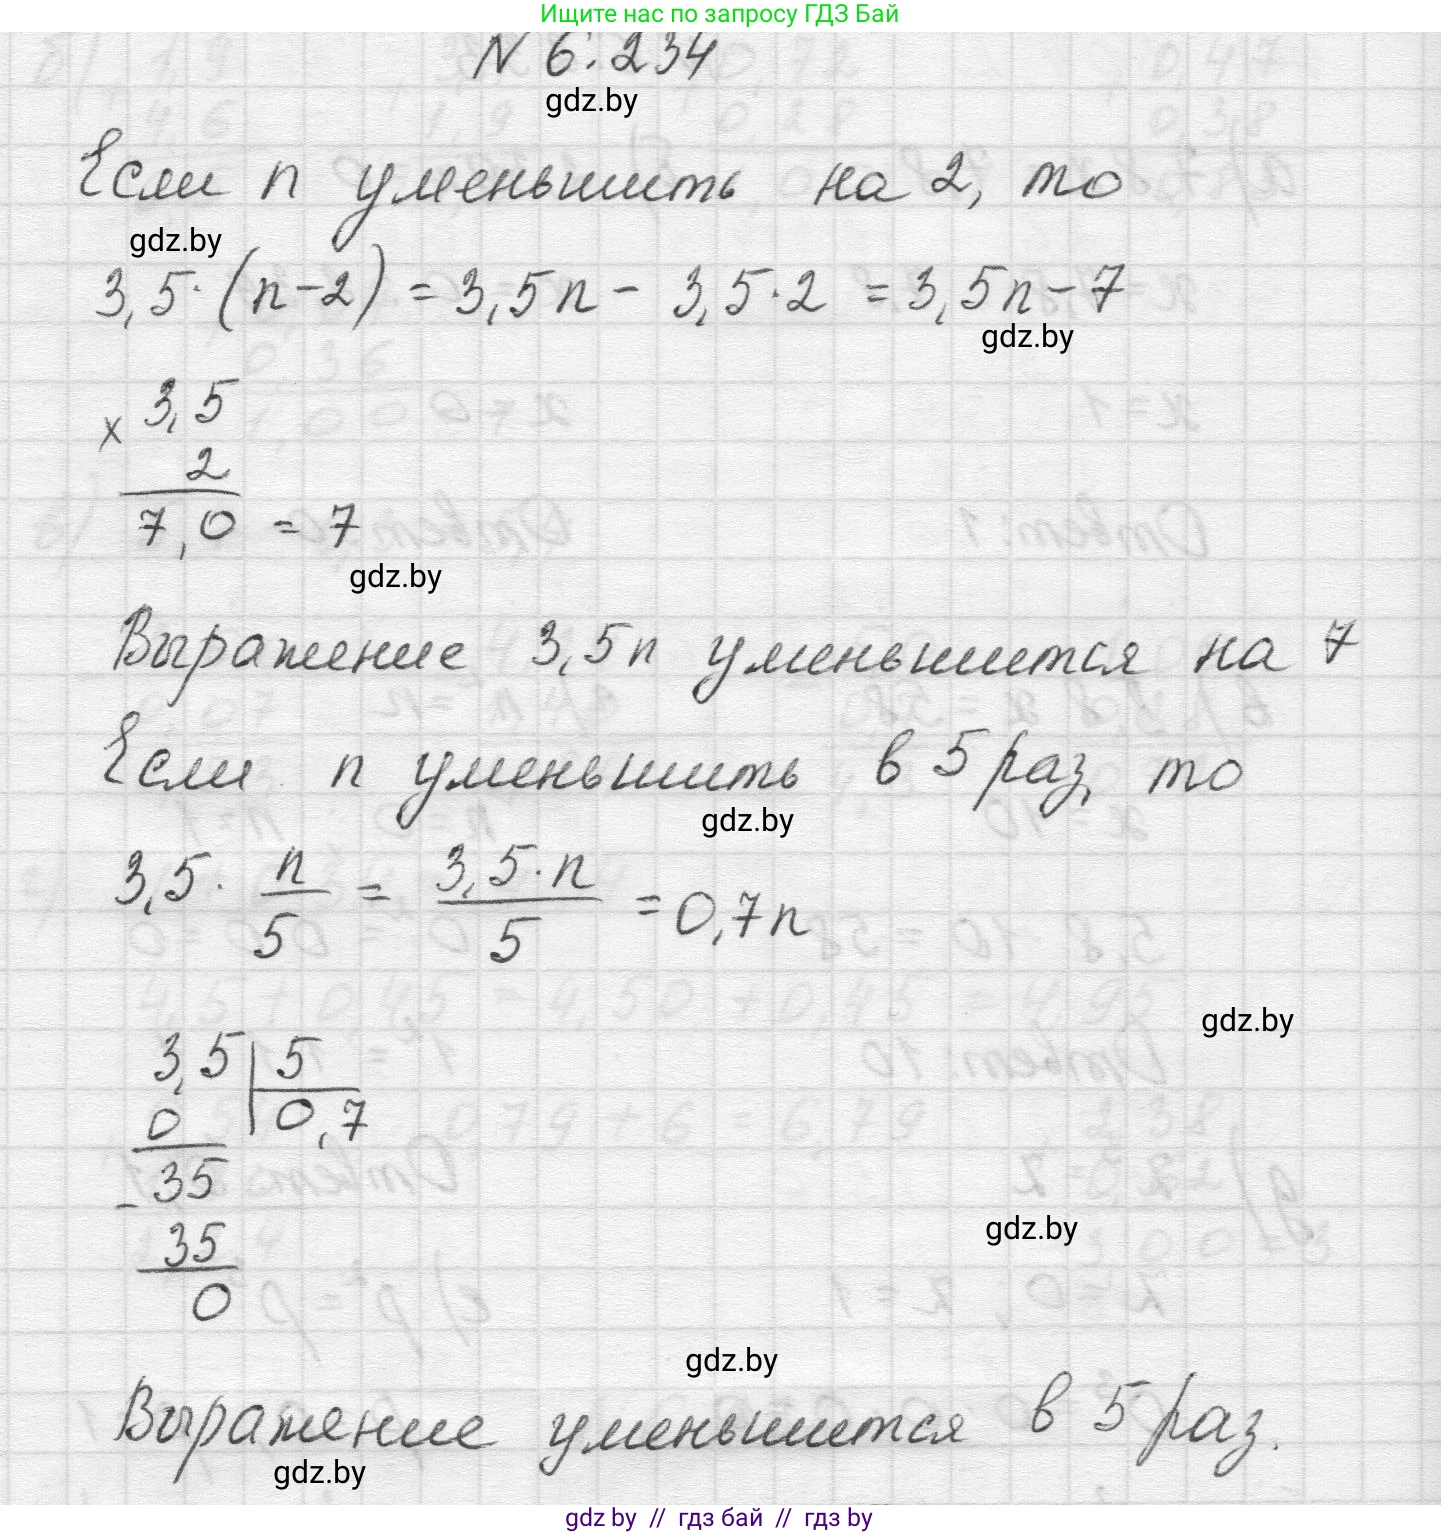 Ищите нас по запросу ГДЗ Бай
N 6.234
gdz.by
Если n уменьшить на 2, то
gdz.by
3,5·(n-2) = 3,5n - 3,5·2 = 3,5n - 7
gdz.by
3,5
×
2
7,0 = 7
gdz.by
Выражение 3,5n уменьшится на 7
Если n уменьшить в 5 раз, то
gdz.by
3,5 · n/5 = 3,5·n/5 = 0,7n
gdz.by
3,5 | 5
0 | 0,7
- 35
35
0
gdz.by
gdz.by
Выражение уменьшится в 5 раз.
gdz.by
gdz by // гдз бай // гдз by